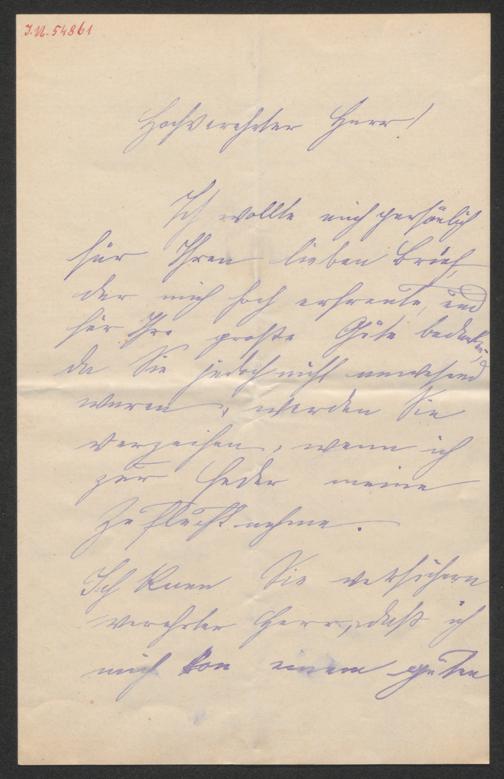 I.N. 54861
Hochverehrter Herr!
Ich wollte mich persönlich
für Ihren lieben Brief,
der mich hoch erfreute, und
für Ihre große Güte bedanken,
da Sie jedoch nicht anwesend
waren, werden Sie
verzeihen, wenn ich
zur Feder meine
Zuflucht nehme.
Ich kann Sie versichern
verehrter Herr, daß ich
mich von einem guten